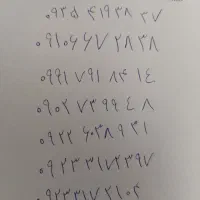 ۰۹۳۵ ۴۱۹ ۳۸ ۲۷
۰۹۱۰۶ ۶۷ ۲۸ ۳۸
۰۹۹۱ ۷۹۱ ۸۴ ۱۴
۰۹۰۲ ۷۳ ۹۹ ۴ ۸
۰۹۲۲ ۶۰۳۸ ۹ ۳۱
۰۹ ۲۳ ۳۱۷ ۲۳۹۷
۰۹۲۳ ۳۱۷ ۲۱۰۴